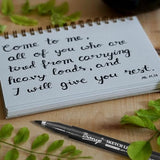 Come to me,
all of you who are
tired from carrying
heavy loads, and
I will give you rest.
Mt. 11:28